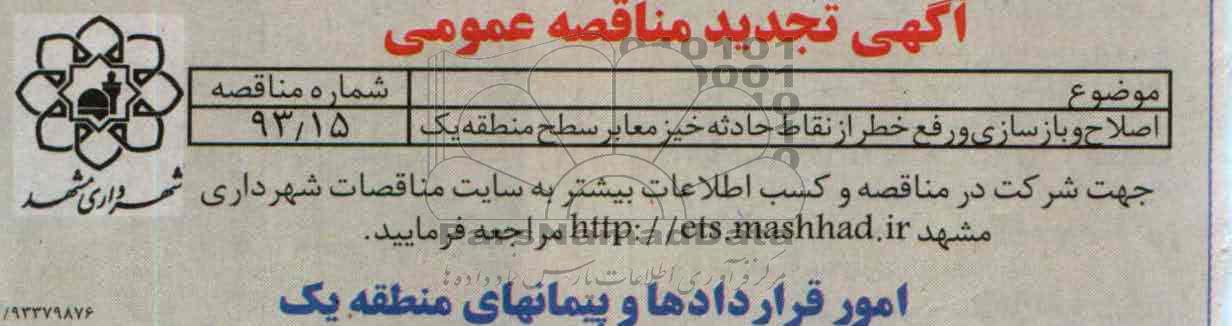 آگهی تجدید مناقصه عمومی
موضوع	شماره مناقصه
اصلاح و بازسازی و رفع خطر از نقاط حادثه خیز معابر سطح منطقه یک	۹۳/۱۵
جهت شرکت در مناقصه و کسب اطلاعات بیشتر به سایت مناقصات شهرداری
مشهد http://ets.mashhad.ir مراجعه فرمایید.
امور قراردادها و پیمانهای منطقه یک
شهرداری مشهد
/۹۳۳۷۹۸۷۶
ParsNamadData
مرکز فرآوری اطلاعات پارس نماد داده ها